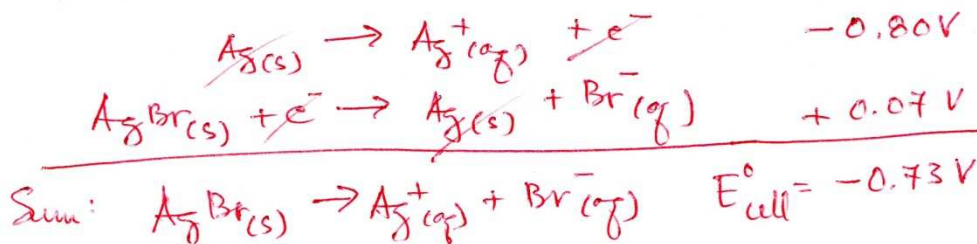 Ag(s) → Ag⁺(aq) + e⁻ -0.80V
AgBr(s) + e⁻ → Ag(s) + Br⁻(aq) +0.07 V
Sum: AgBr(s) → Ag⁺(aq) + Br⁻(aq) E°cell = -0.73 V